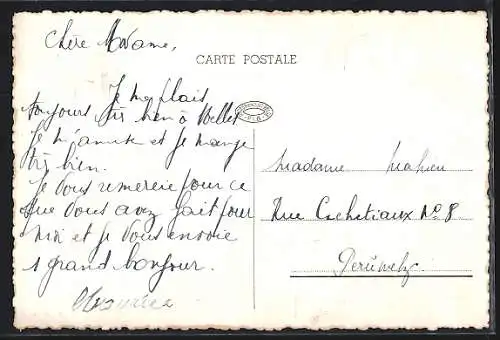 Chère Madame,
CARTE POSTALE
Je me plais
toujours très bien à Wellet
Je m'amuse et Je mange
très bien.
Je Vous remercie pour ce
que Vous avez fait pour
moi et Je Vous envoie
1 grand bonjour.
Madame Mahieu
Rue Cachetiaux No 8
Péruwelz